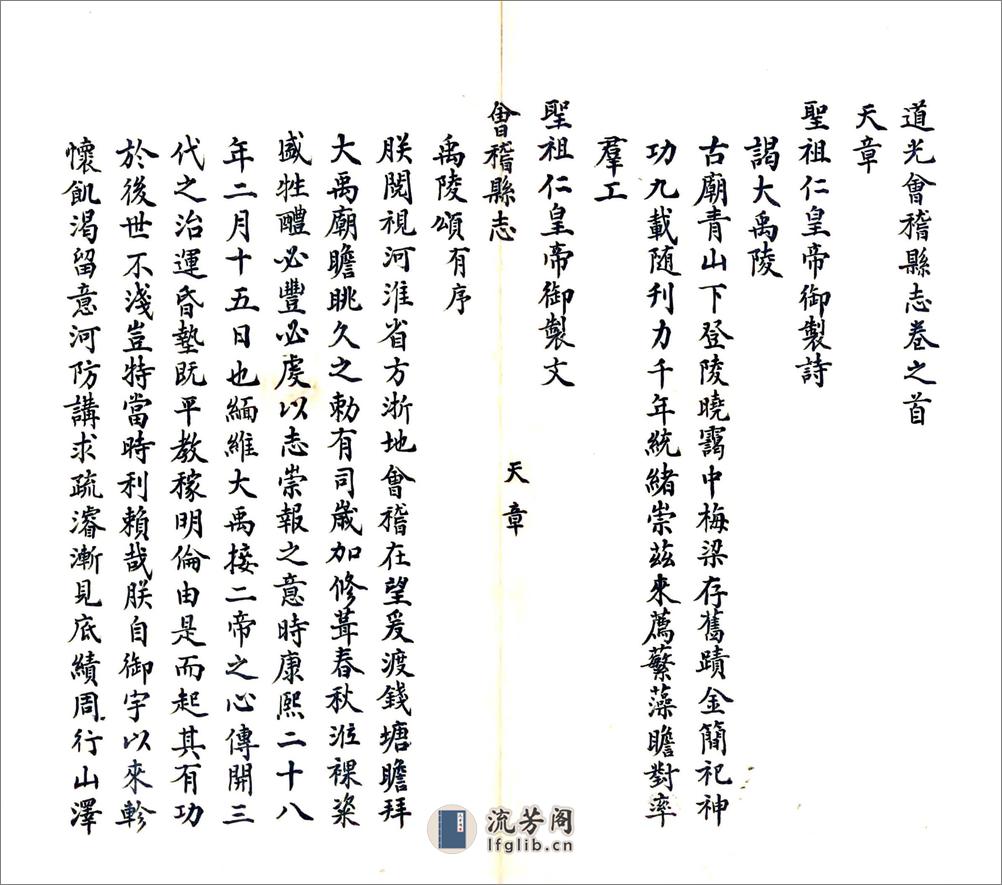 道光會稽縣志卷之首
天章
聖祖仁皇帝御製詩
謁大禹陵
古廟青山下登陵曉靄中梅梁存舊蹟金簡祀神
功九載隨刋力千年統緒崇茲來薦蘩藻瞻對率
羣工
聖祖仁皇帝御製文
會稽縣志
天章
禹陵頌有序
朕閱視河淮省方浙地會稽在望爰渡錢塘瞻拜
大禹廟瞻眺久之勅有司歲加修葺春秋涖祼粢
盛牲醴必豐必虔以志崇報之意時康熙二十八
年二月十五日也緬維大禹接二帝之心傳開三
代之治運昏墊既平教稼明倫由是而起其有功
於後世不淺豈特當時利賴哉朕自御宇以來軫
懷飢渴留意河防講求疏濬漸見底績周行山澤
流芳阁
lfglib.cn